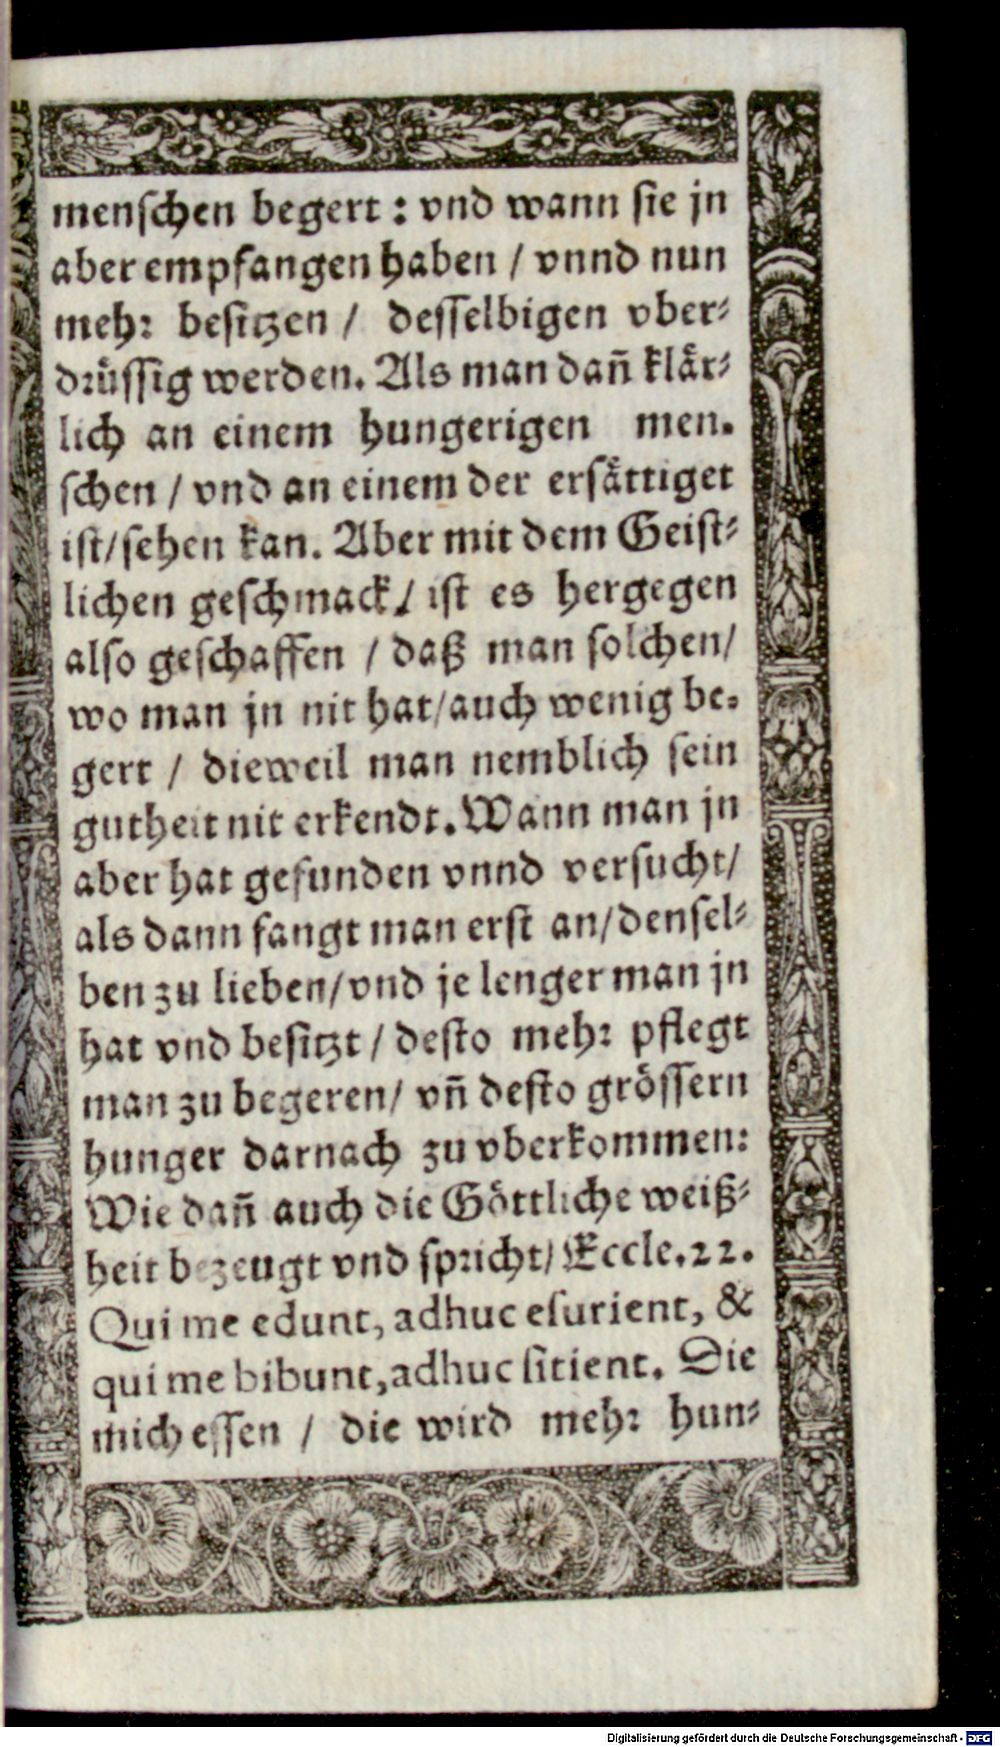 menschen begert : vnd wann sie jn
aber empfangen haben / vnnd nun
mehr besitzen / desselbigen vber-
drüssig werden. Als man dañ klär-
lich an einem hungerigen men.
schen / vnd an einem der ersättiget
ist/sehen kan. Aber mit dem Geist-
lichen geschmack/ ist es hergegen
also geschaffen / daß man solchen/
wo man jn nit hat/auch wenig be-
gert / dieweil man nemblich sein
gutheit nit erkendt. Wann man jn
aber hat gefunden vnnd versucht/
als dann fangt man erst an/densel-
ben zu lieben/vnd je lenger man jn
hat vnd besitzt / desto mehr pflegt
man zu begeren/ vñ desto grössern
hunger darnach zu vberkommen:
Wie dañ auch die Göttliche weiß-
heit bezeugt vnd spricht/ Eccle.22.
Qui me edunt, adhuc esurient, &
qui me bibunt, adhuc sitient. Die
mich essen / die wird mehr hun-
Digitalisierung gefördert durch die Deutsche Forschungsgemeinschaft - DFG